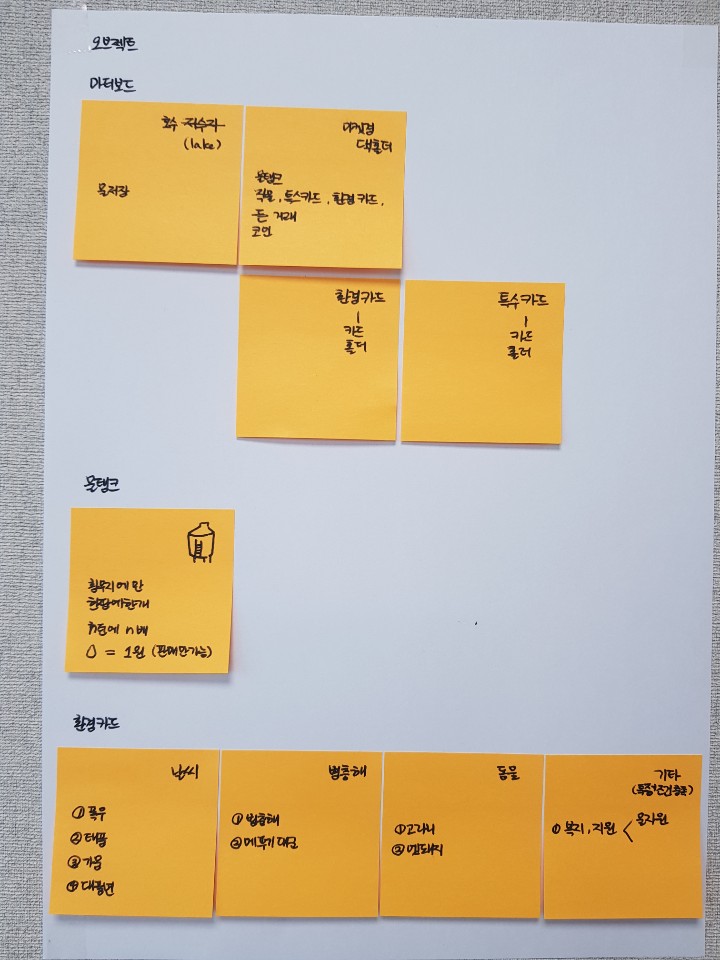 오브젝트
마더보드
호수 저수지
(lake)
물저장
마켓겸
덱홀더
물탱크
작물, 특스카드, 환경카드,
돈 거래
코인
환경카드
카드
홀더
특수카드
카드
홀더
물탱크
한턴에한개
n배
= 1원 (판매만가능)
환경카드
날씨
① 폭우
② 태풍
③ 가뭄
④ 대풍년
병충해
① 병충해
② 메뚜기 대란
동물
① 고라니
② 멧돼지
기타
(특정조건충족)
① 복지, 지원 < 물자원